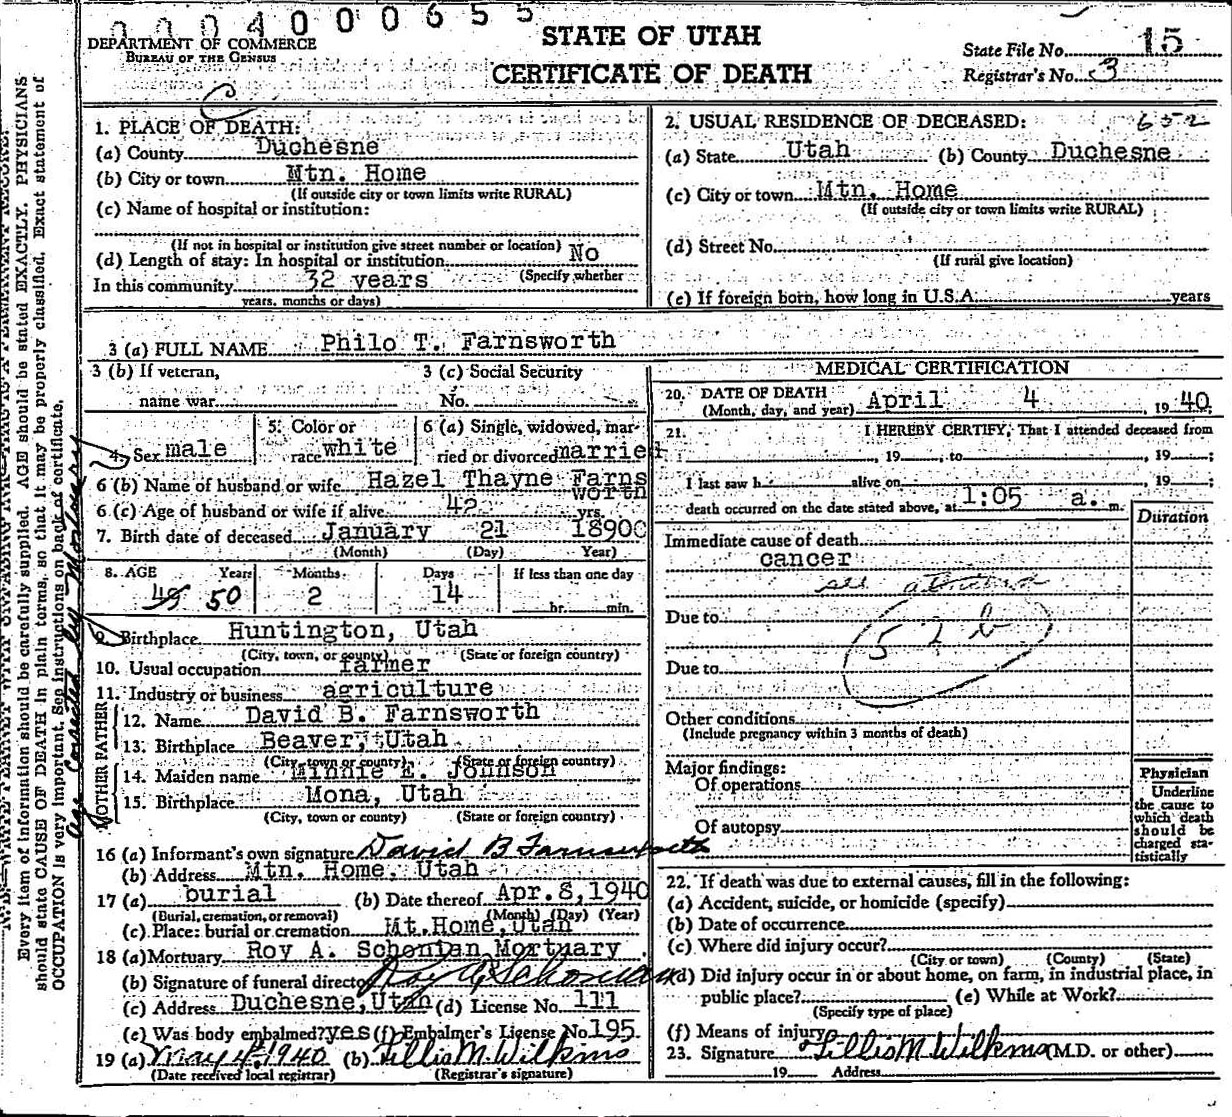 0004000655
DEPARTMENT OF COMMERCE
BUREAU OF THE CENSUS
STATE OF UTAH
CERTIFICATE OF DEATH
State File No. 15
Registrar's No. 3
1. PLACE OF DEATH:
(a) County Duchesne
(b) City or town Mtn. Home
(If outside city or town limits write RURAL)
(c) Name of hospital or institution:
(If not in hospital or institution give street number or location)
(d) Length of stay: In hospital or institution No
(Specify whether
In this community 32 years
years, months or days)
2. USUAL RESIDENCE OF DECEASED: 652
(a) State Utah (b) County Duchesne
(c) City or town Mtn. Home
(If outside city or town limits write RURAL)
(d) Street No.
(If rural give location)
(e) If foreign born, how long in U.S.A. years
3 (a) FULL NAME Philo T. Farnsworth
3 (b) If veteran,
name war
3 (c) Social Security
No.
4. Sex male
5. Color or
race white
6 (a) Single, widowed, mar-
ried or divorced married
6 (b) Name of husband or wife Hazel Thayne Farns
worth
6 (c) Age of husband or wife if alive 42 yrs.
7. Birth date of deceased January 21 1890
(Month) (Day) Year)
8. AGE Years Months Days If less than one day
49 50 2 14 hr. min.
9. Birthplace Huntington, Utah
(City, town, or county) (State or foreign country)
10. Usual occupation farmer
11. Industry or business agriculture
FATHER
12. Name David B. Farnsworth
13. Birthplace Beaver, Utah
(City, town or county) (State or foreign country)
MOTHER
14. Maiden name Minnie E. Johnson
15. Birthplace Mona, Utah
(City, town or county) (State or foreign country)
16 (a) Informant's own signature David B Farnsworth
(b) Address Mtn. Home, Utah
17 (a) burial (b) Date thereof Apr. 8, 1940
(Burial, cremation, or removal) (Month) (Day) (Year)
(c) Place: burial or cremation Mt. Home, Utah
18 (a) Mortuary Roy A. Schonian Mortuary
(b) Signature of funeral director Roy A. Schonian
(c) Address Duchesne, Utah (d) License No. 111
(e) Was body embalmed? yes (f) Embalmer's License No 195
19 (a) May 4th 1940 (b) Lillis M. Wilkins
(Date received local registrar) (Registrar's signature)
MEDICAL CERTIFICATION
20. DATE OF DEATH
(Month, day, and year) April 4, 1940;
21. I HEREBY CERTIFY, That I attended deceased from
, 19 , to , 19 ;
I last saw h alive on , 19 ;
death occurred on the date stated above, at 1:05 a. m.
Duration
Immediate cause of death
cancer
see
Due to
52 b
Due to
Other conditions
(Include pregnancy within 3 months of death)
Major findings:
Of operations
Of autopsy
Physician
Underline
the cause to
which death
should be
charged sta-
tistically
22. If death was due to external causes, fill in the following:
(a) Accident, suicide, or homicide (specify)
(b) Date of occurrence
(c) Where did injury occur?
(City or town) (County) (State)
(d) Did injury occur in or about home, on farm, in industrial place, in
public place? (e) While at Work?
(Specify type of place)
(f) Means of injury
23. Signature Lillis M. Wilkins (M.D. or other)
19 Address
Every item of information should be carefully supplied. AGE should be stated EXACTLY. PHYSICIANS
should state CAUSE OF DEATH in plain terms, so that it may be properly classified. Exact statement of
OCCUPATION is very important. See instructions on back of certificate.
age corrected by Mortuary